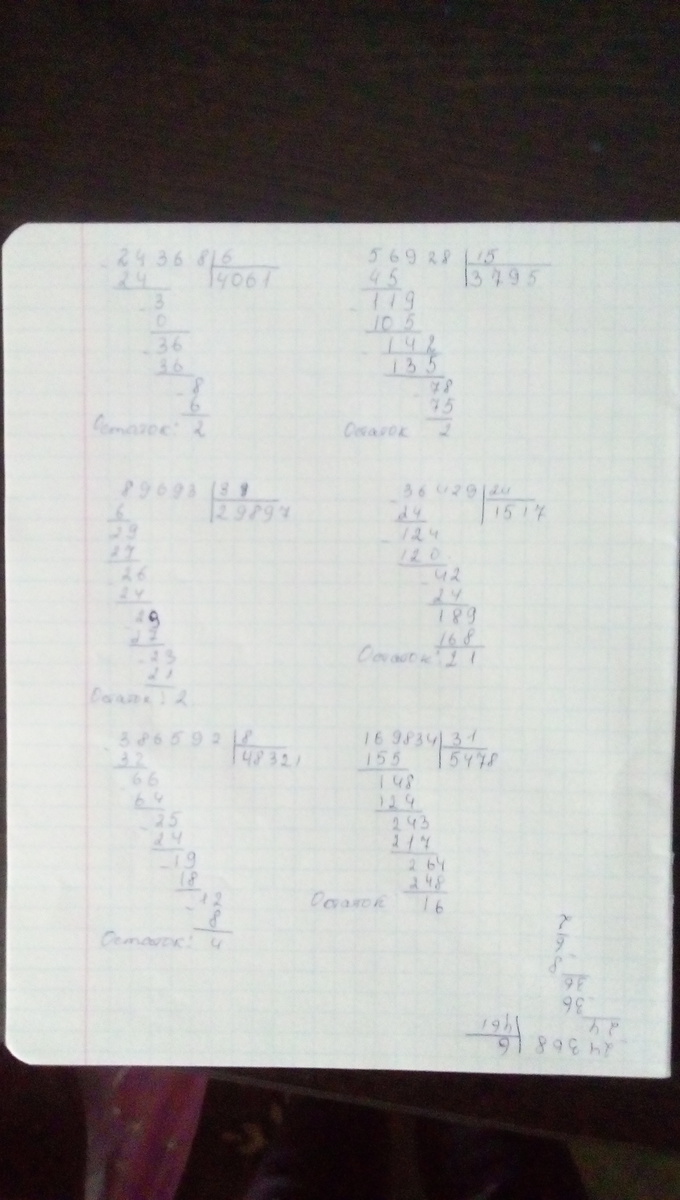 24368 | 6
24 | 4061
3
0
36
36
8
6
Остаток: 2
56928 | 15
45 | 3795
119
105
142
135
78
75
Остаток 2
89693 | 3
6 | 29897
29
27
26
24
29
27
23
21
Остаток: 2
36429 | 24
24 | 1517
124
120
42
24
189
168
Остаток: 21
386592 | 8
32 | 48321
66
64
25
24
19
18
12
8
Остаток: 4
169834 | 31
155 | 5478
148
124
243
217
264
248
Остаток 16
24368 | 6
24 | 461
36
36
8
6
2